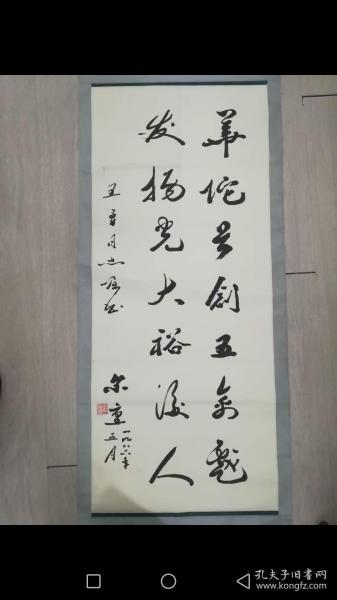 華佗首创五禽戲
发扬光大裕後人
王章同志留念
尔重
一九八六年
五月
孔夫子旧书网
www.kongfz.com